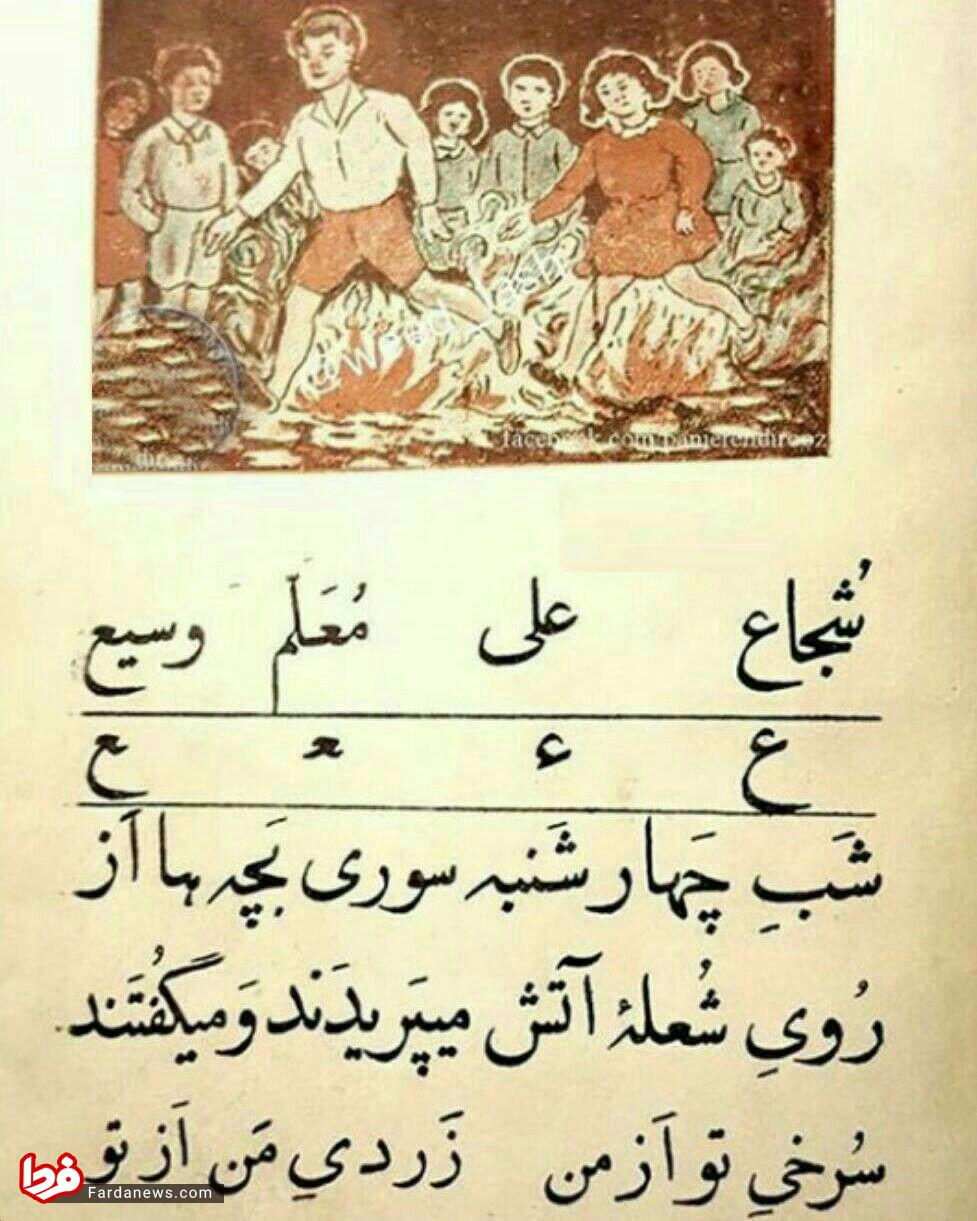 facebook.com/panjerehdirooz
شُجاع علی مُعَلّم وسیع
ع ء ـعـ ـع
شَبِ چَهار شَنبه سوری بَچه ها اَز
رُویِ شُعلهٔ آتش میپَریدَند وَ میگُفتَند
سُرخیِ تو اَز من زَردیِ مَن اَز تو
فردا Fardanews.com